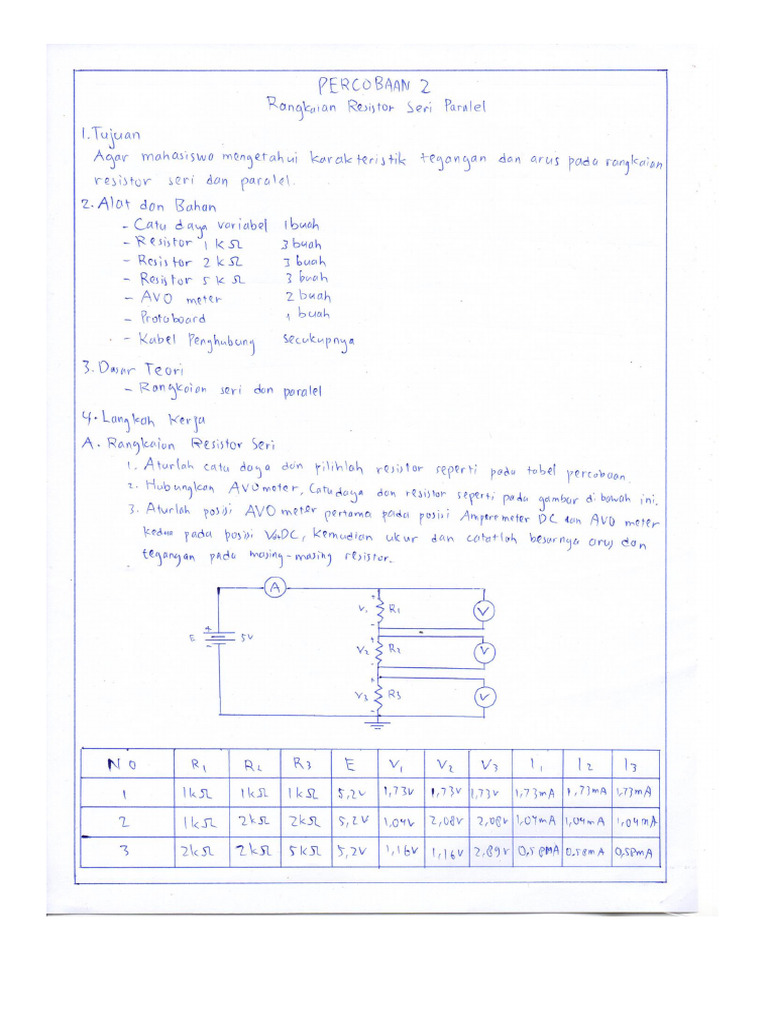 PERCOBAAN 2
Rangkaian Resistor Seri Paralel
1. Tujuan
Agar mahasiswa mengetahui karakteristik tegangan dan arus pada rangkaian
resistor seri dan paralel.
2. Alat dan Bahan
- Catu daya variabel 1 buah
- Resistor 1 kΩ 3 buah
- Resistor 2 kΩ 3 buah
- Resistor 5 kΩ 3 buah
- AVO meter 2 buah
- Protoboard 1 buah
- Kabel Penghubung secukupnya
3. Dasar Teori
- Rangkaian seri dan paralel
4. Langkah Kerja
A. Rangkaian Resistor Seri
1. Aturlah catu daya dan pilihlah resistor seperti pada tabel percobaan.
2. Hubungkan AVO meter, Catu daya dan resistor seperti pada gambar di bawah ini.
3. Aturlah posisi AVO meter pertama pada posisi Ampere meter DC dan AVO meter
kedua pada posisi DC, kemudian ukur dan catatlah besarnya arus dan
tegangan pada masing-masing resistor.
A
+ V1 R1 - V
E + - 5V
+ V2 R2 - V
+ V3 R3 - V
NO R1 R2 R3 E V1 V2 V3 I1 I2 I3
1 1kΩ 1kΩ 1kΩ 5,2V 1,73V 1,73V 1,73V 1,73mA 1,73mA 1,73mA
2 1kΩ 2kΩ 2kΩ 5,2V 1,04V 2,08V 2,08V 1,04mA 1,04mA 1,04mA
3 2kΩ 2kΩ 5kΩ 5,2V 1,16V 1,16V 2,89V 0,58MA 0,58mA 0,58mA